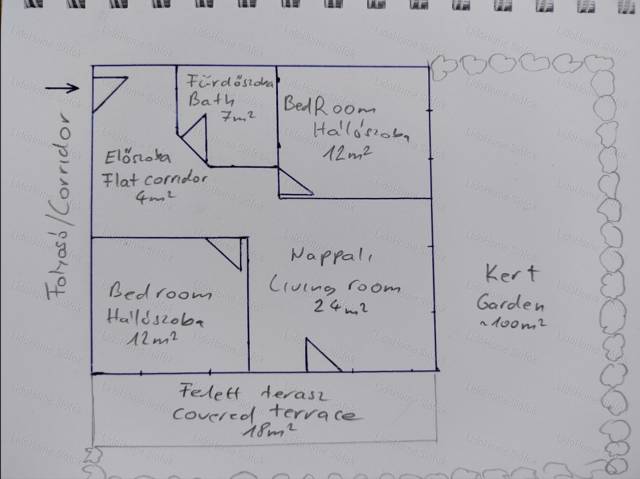 Fürdőszoba
Bath
7m²
BedRoom
Hálószoba
12m²
Előszoba
Flat corridor
4m²
Folyosó/Corridor
Nappali
Living room
24m²
Bedroom
Hálószoba
12m²
Kert
Garden
~100m²
Felett terasz
covered terrace
18m²